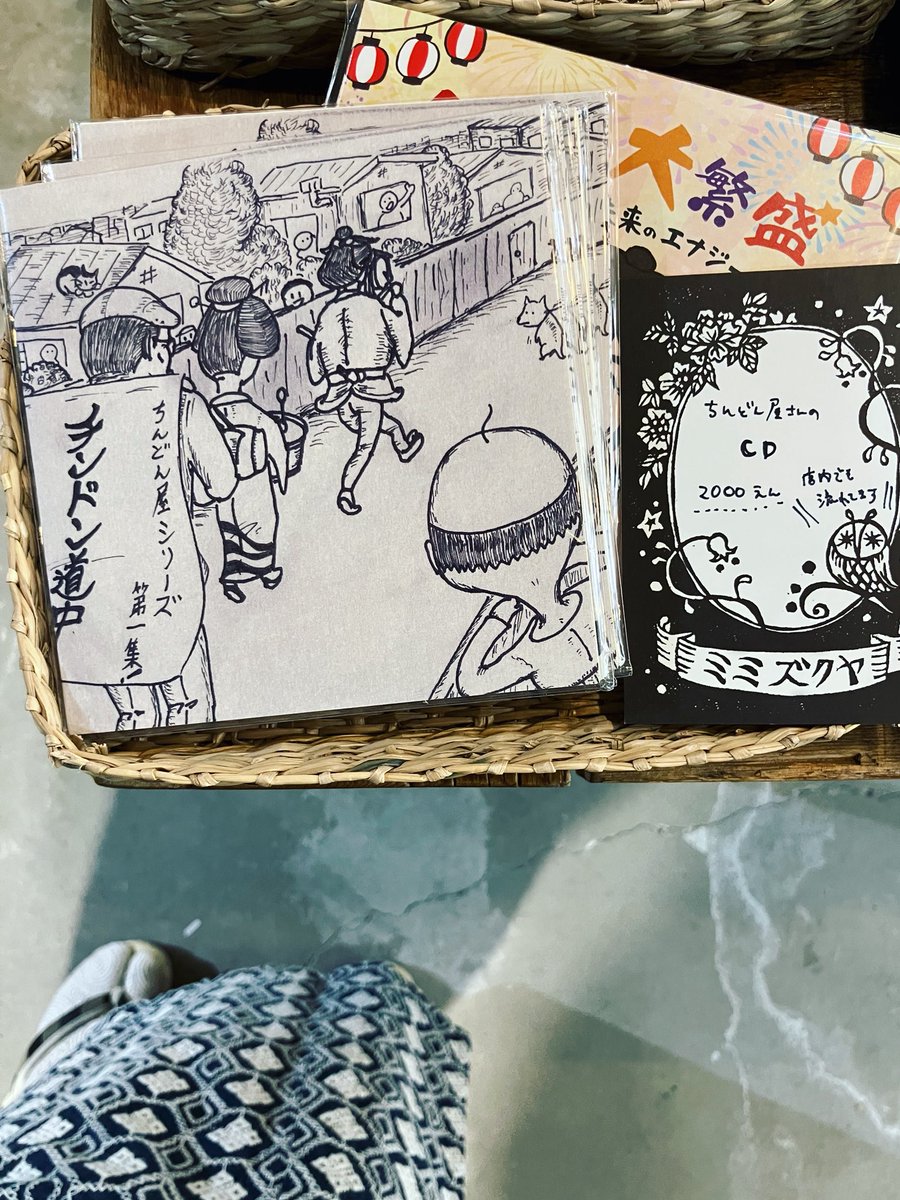 ちんどん屋シリーズ
第一集!
チンドン道中
大繁盛
来のエナジー
ちんどん屋さんの
CD
2000えん
店内でも
流れてます
ミミズクヤ